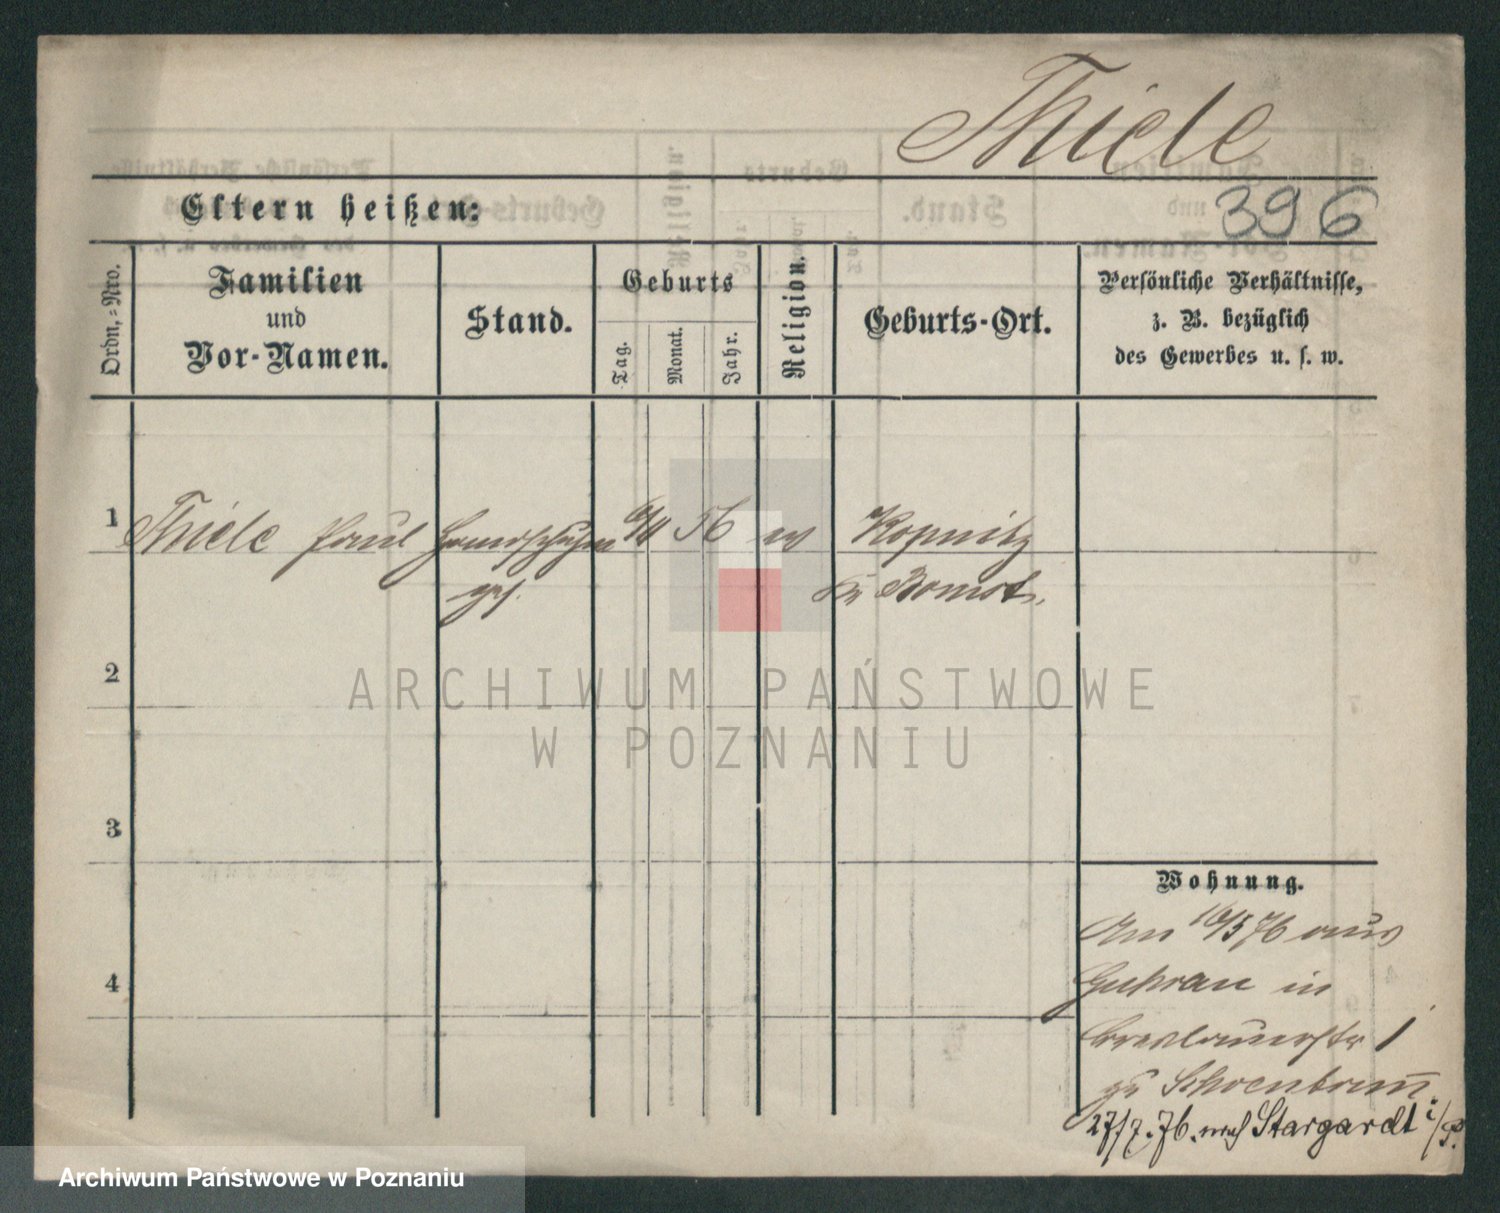 Thiele
Eltern heißen:
396
Ordn.=Nro.
Familien
und
Vor-Namen.
Stand.
Geburts
Tag.
Monat.
Jahr.
Religion.
Geburts-Ort.
Persönliche Verhältnisse,
z. B. bezüglich
des Gewerbes u. s. w.
1
Thiele Paul
Handschuhm
ges.
6/11 56
ev
Kopnitz
Kr Bomst.
2
ARCHIWUM PAŃSTWOWE
W POZNANIU
3
4
Wohnung.
Am 16/5 76 aus
Guhrau in
Breslauerstr 1
zu Schoenborn
27/7.76. nach Stargardt i/P.
Archiwum Państwowe w Poznaniu